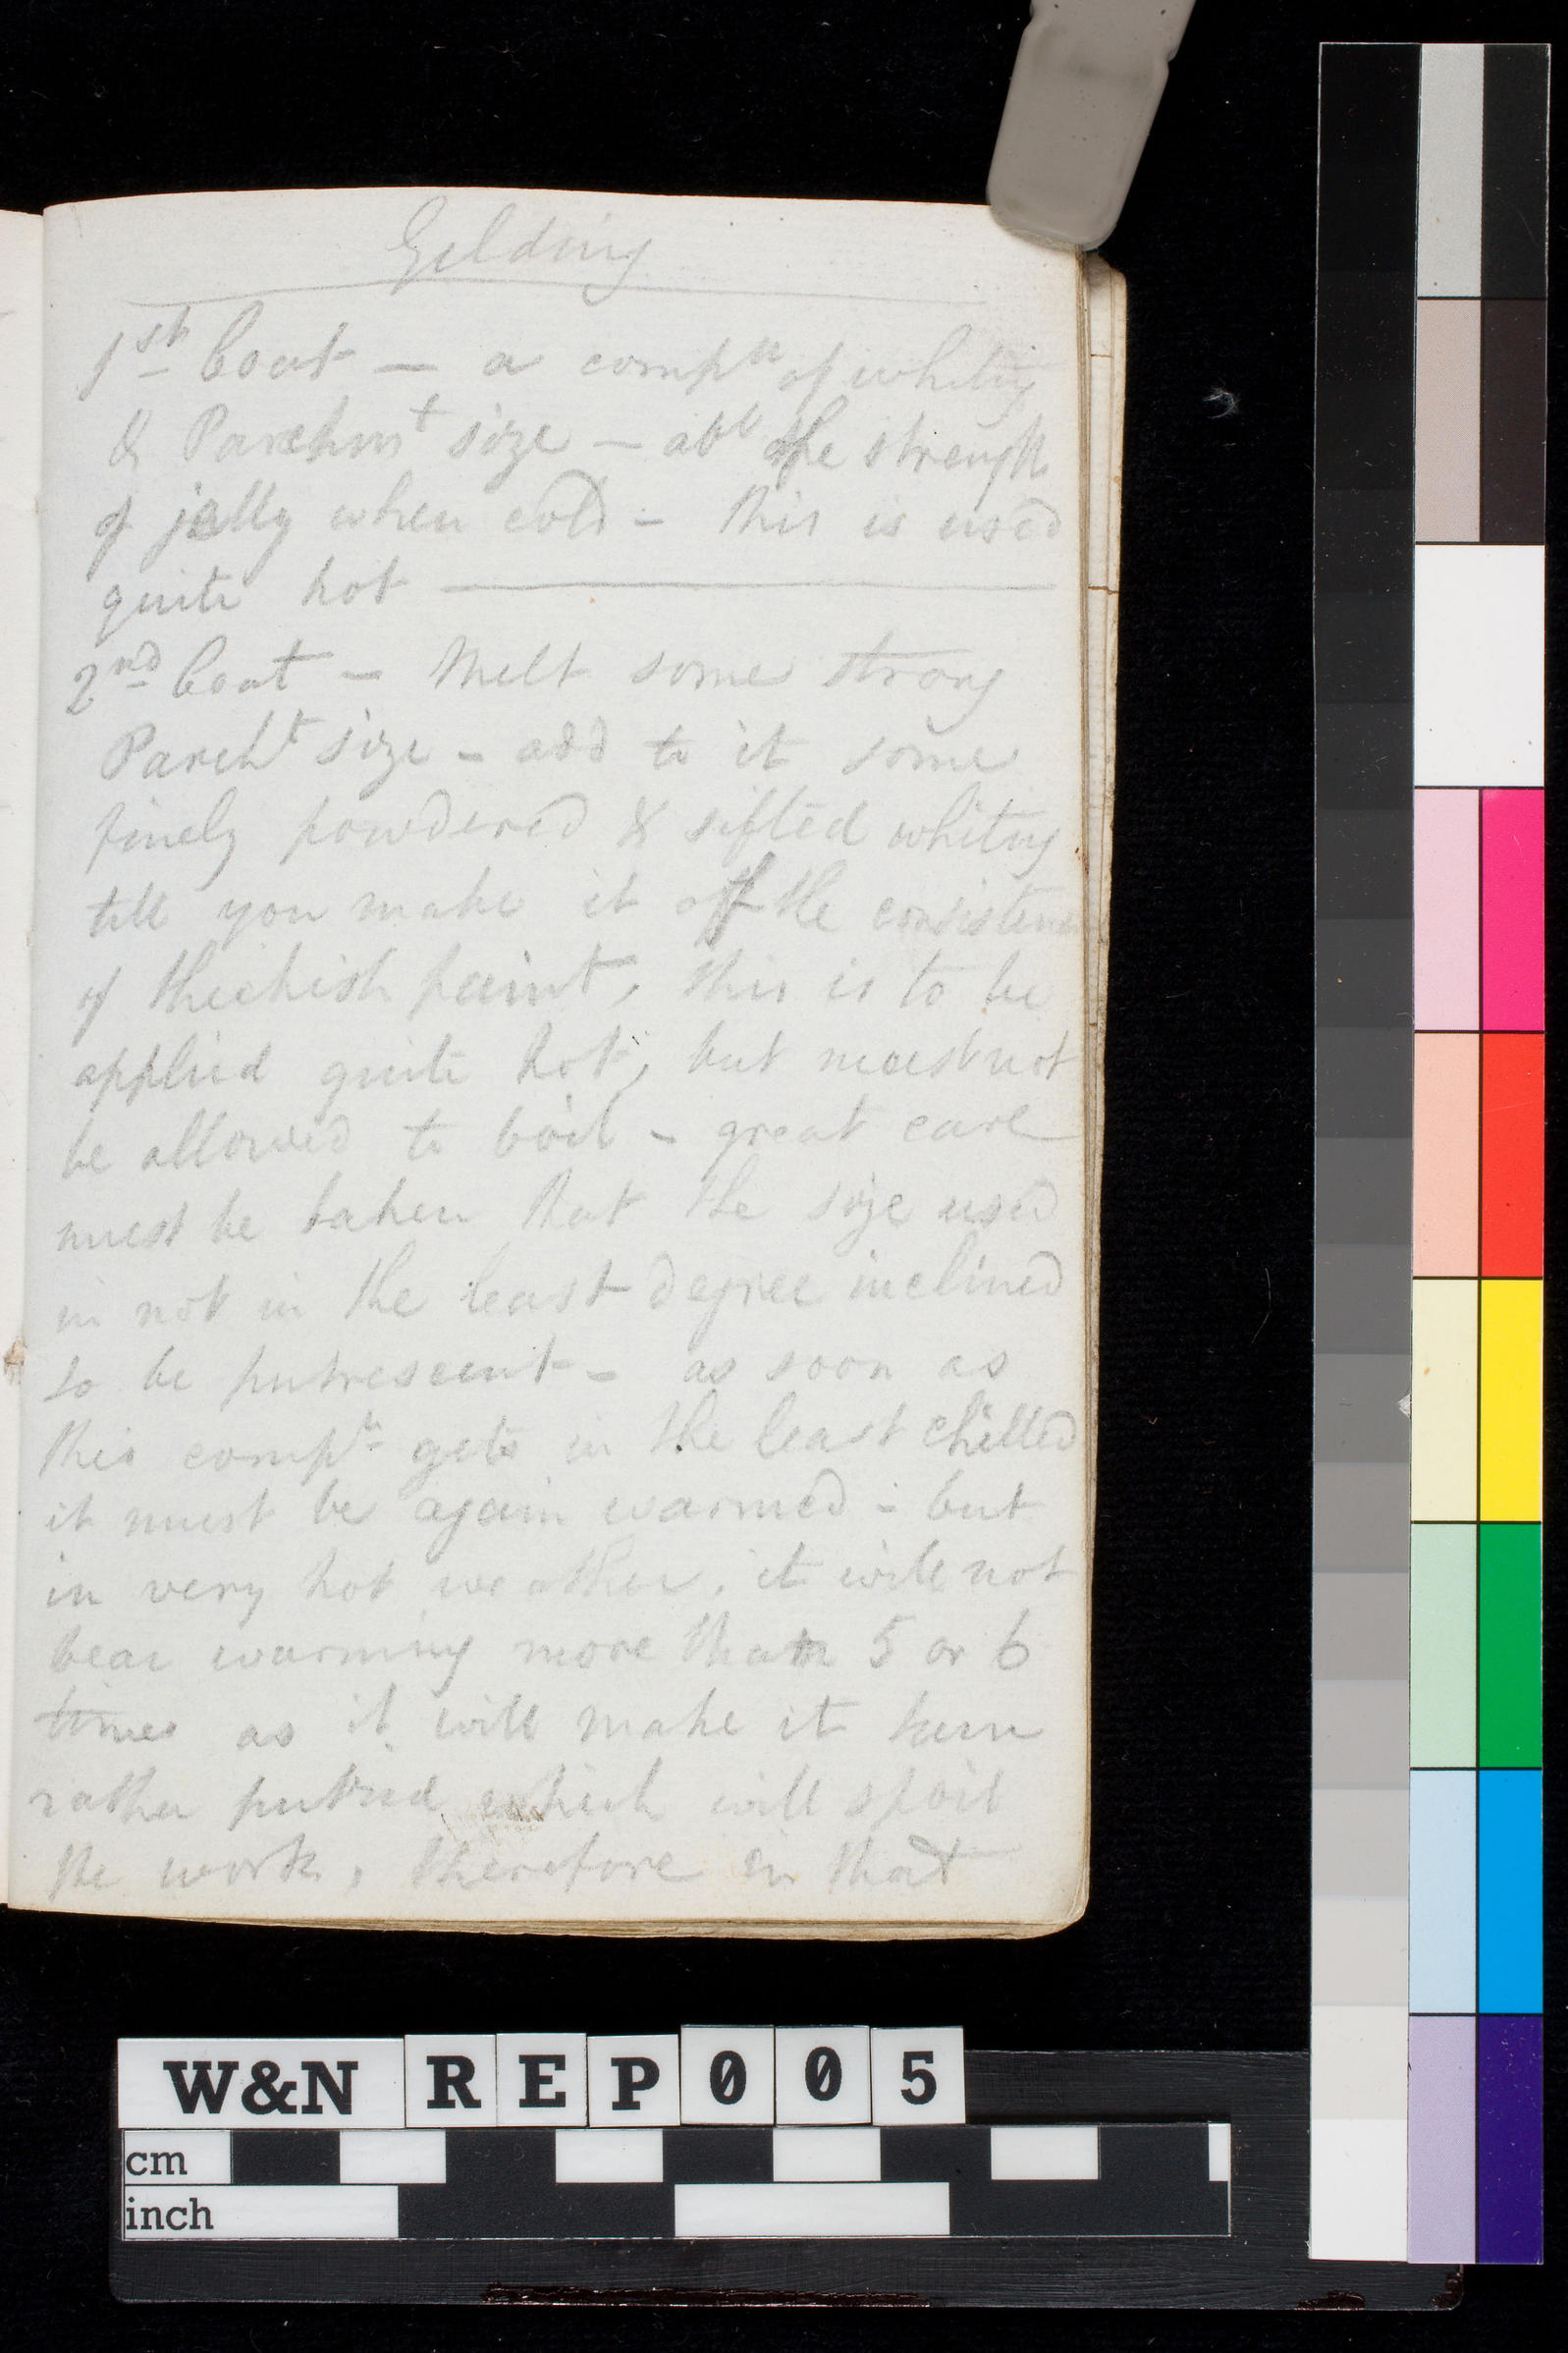 Gilding
1st Coat — a compn of whiting
& Parchmt size — abt the strength
of jelly when cold – this is used
quite hot ———
2nd Coat – Melt some strong
Parcht size – add to it some
finely powdered & sifted whiting
till you make it of the consistency
of thickish paint, this is to be
applied quite hot, but must not
be allowed to boil – great care
must be taken that the size used
in not in the least degree inclined
to be putrescent – as soon as
this compn gets in the least chilled
it must be again warmed – but
in very hot weather, it will not
bear warming more than 5 or 6
times as it will make it turn
rather putrid which will spoil
the work, therefore in that
W&N REP005
cm
inch